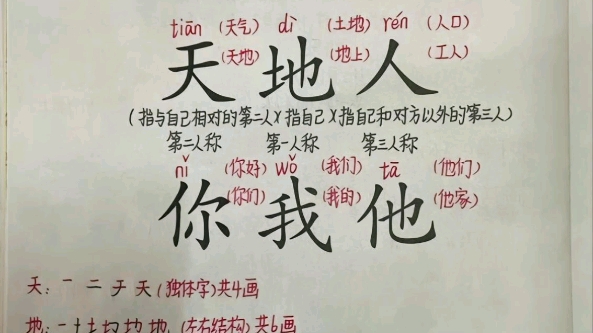 tiān (天气) dì (土地) rén (人口)
天 (天地) 地 (地上) 人 (工人)
(指与自己相对的第二人)(指自己)(指自己和对方以外的第三人)
第二人称 第一人称 第三人称
nǐ (你好) wǒ (我们) tā (他们)
你 (你们) 我 (我的) 他 (他家)
天: 一 二 于 天 (独体字) 共4画
地: 一 十 土 圠 地 地 (左右结构) 共6画